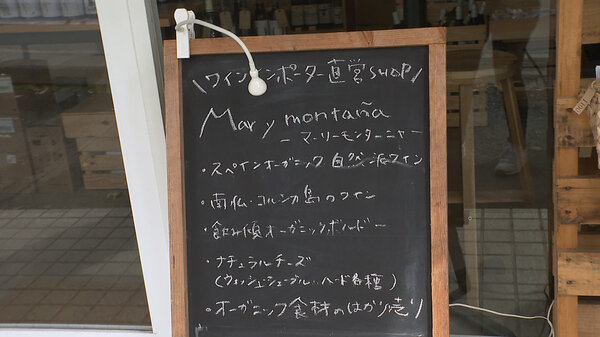 \ワインインポーター直営SHOP/
Mar y montaña
ーマーリーモンターニャー
・スペインオーガニック自然派ワイン
・南仏・コルシカ島のワイン
・飲み頃オーガニックボルドー
・ナチュラルチーズ
(ウォッシュ・シェーブル・ハード各種)
・オーガニック食材のはかり売り